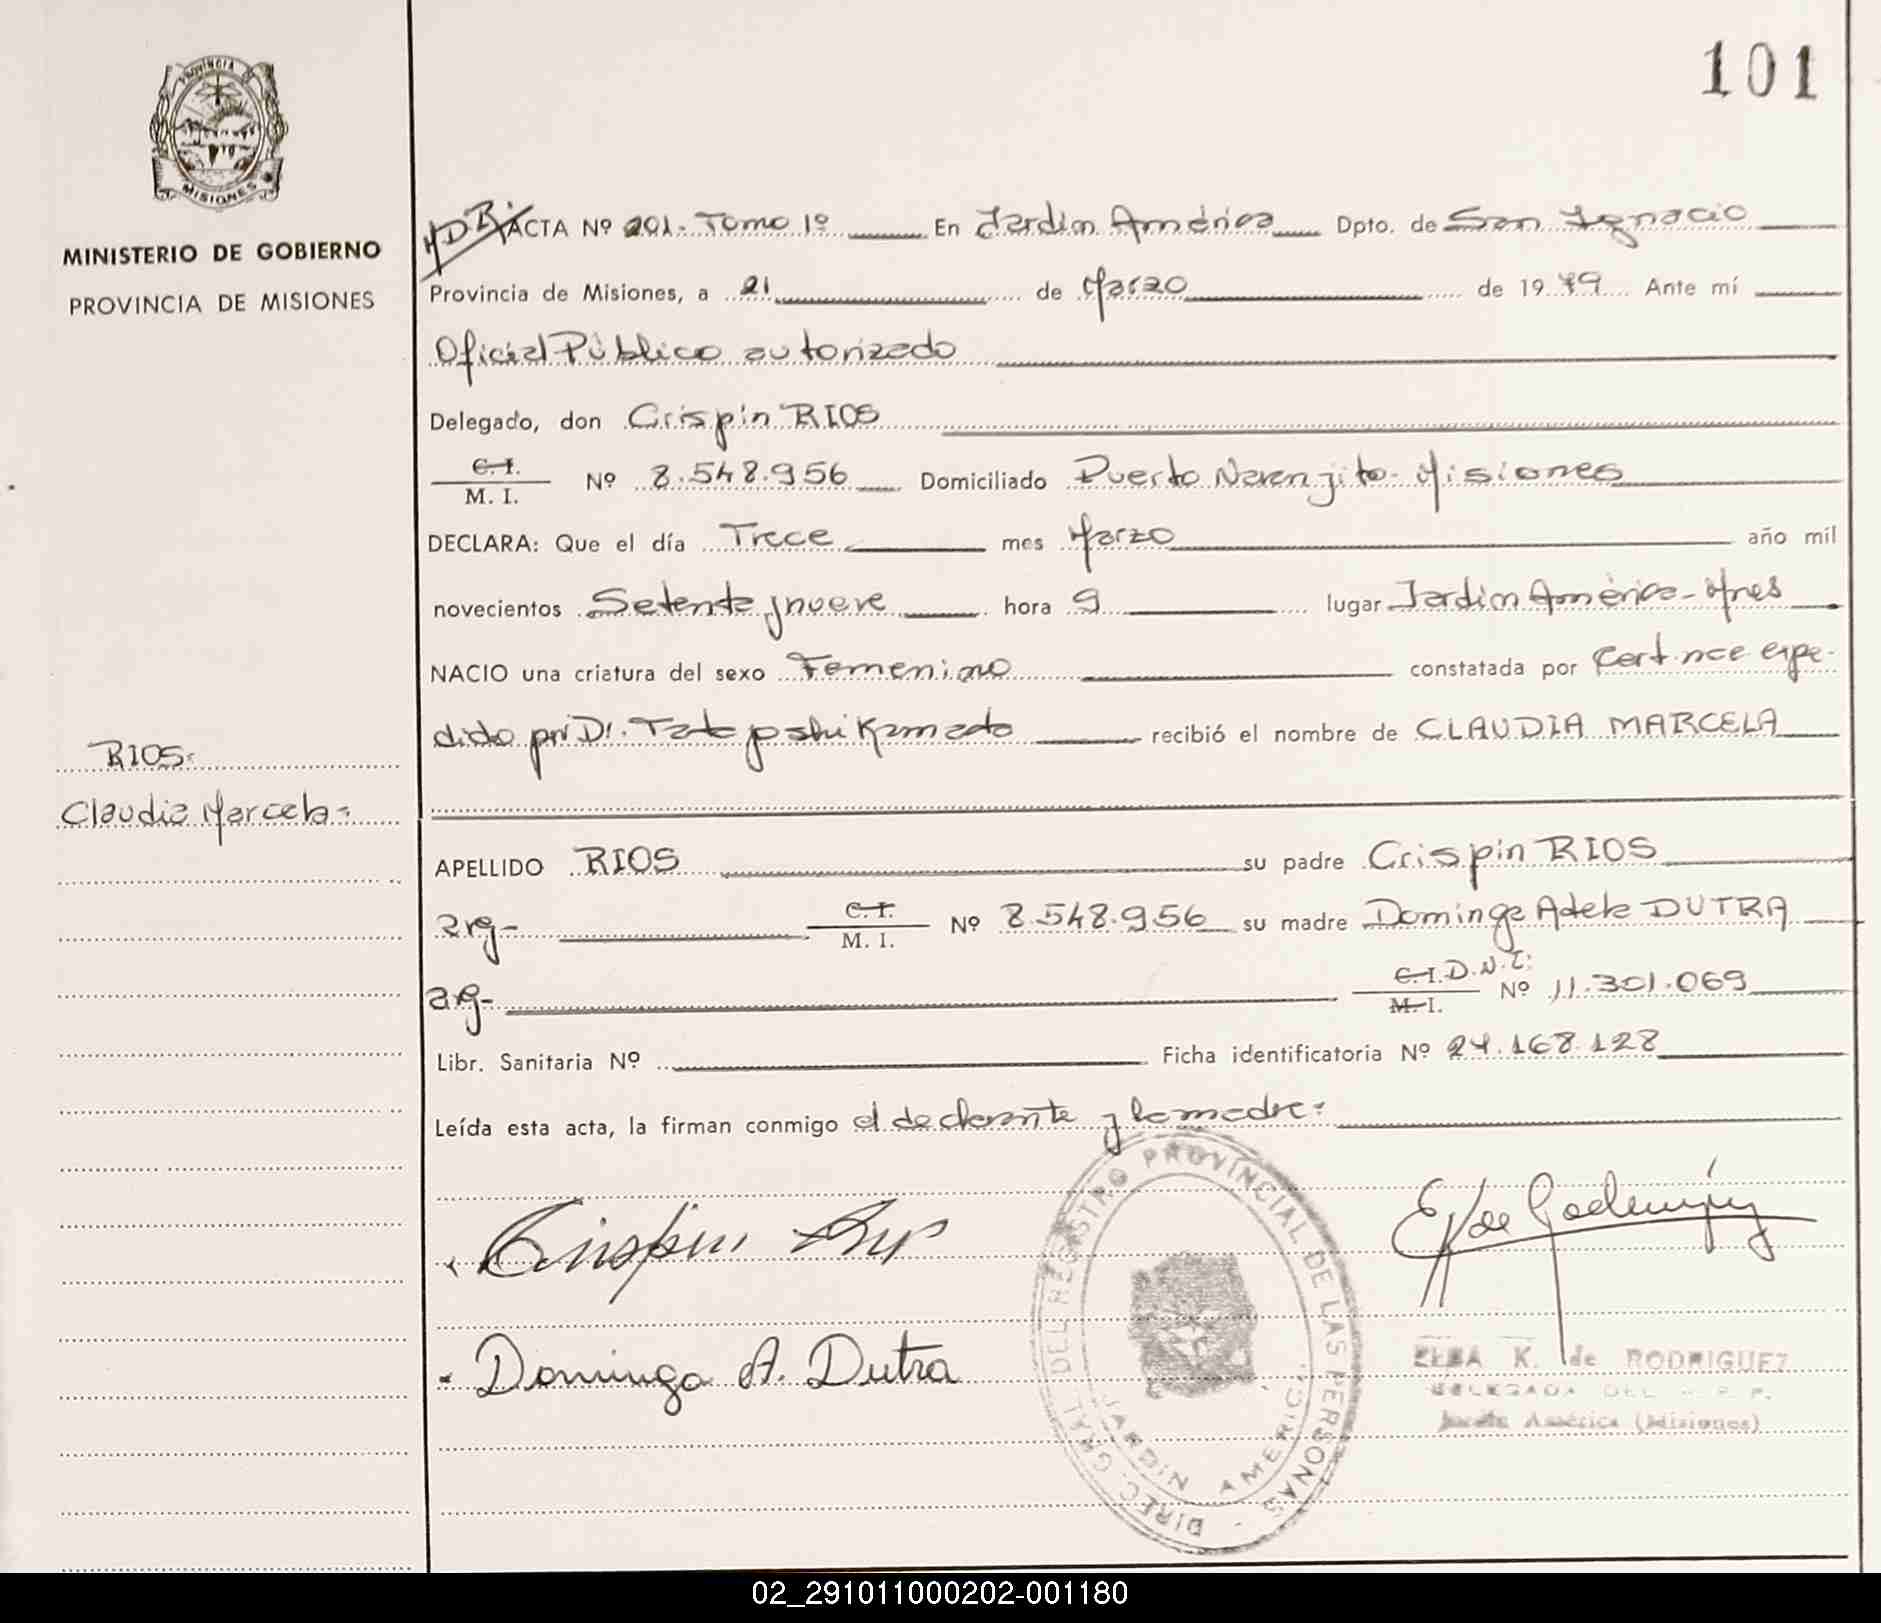 101
PROVINCIA DE
MISIONES
MINISTERIO DE GOBIERNO
PROVINCIA DE MISIONES
ACTA Nº 201- Tomo 1º En Jardín América Dpto. de San Ignacio
Provincia de Misiones, a 21 de Marzo de 1979 Ante mí
Oficial Público autorizado
Delegado, don Crispin RIOS
C. I.
M. I. Nº 8.548.956 Domiciliado Puerto Naranjito- Misiones
DECLARA: Que el día Trece mes Marzo año mil
novecientos Setenta y nueve hora 9 lugar Jardín América- Mnes
NACIO una criatura del sexo Femenino constatada por Cert. nac. expe-
dido por Dr. Kamada recibió el nombre de CLAUDIA MARCELA
RIOS=
Claudia Marcela=
APELLIDO RIOS su padre Crispin RIOS
arg- C. I.
M. I. Nº 8.548.956 su madre Dominga Adela DUTRA
arg- C. I. D.N.I:
M. I. Nº 11.301.069
Libr. Sanitaria Nº Ficha identificatoria Nº 24.168.128
Leída esta acta, la firman conmigo el declarante y la madre=
Crispin
Dominga A. Dutra
DIREC. GRAL DEL REGISTRO PROVINCIAL DE LAS PERSONAS -
JARDIN AMERICA
ELBA K. de RODRIGUEZ
DELEGADA DEL R. P. P.
Jardín América (Misiones)
02_291011000202-001180